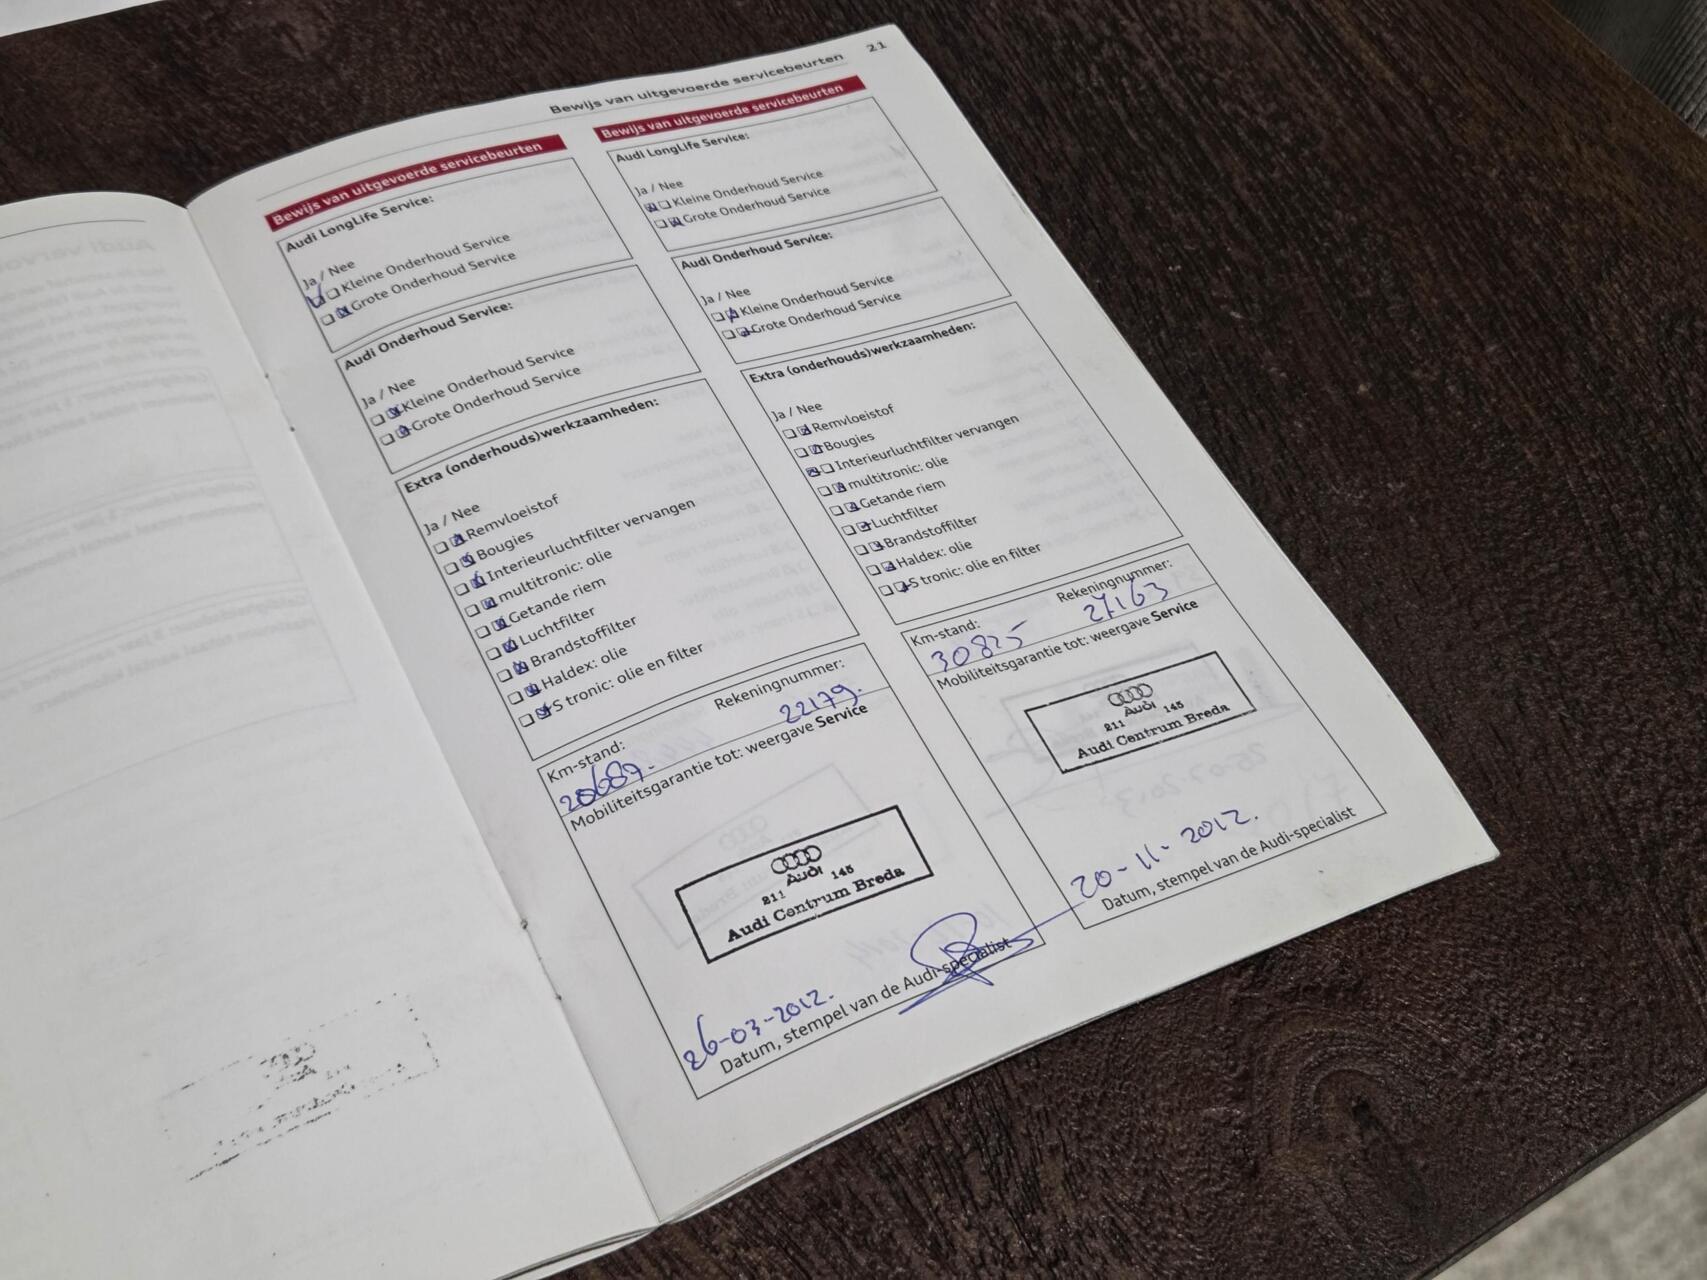 21
Bewijs van uitgevoerde servicebeurten
Bewijs van uitgevoerde servicebeurten
Audi LongLife Service:
Ja / Nee
Kleine Onderhoud Service
Grote Onderhoud Service
Audi Onderhoud Service:
Ja / Nee
Kleine Onderhoud Service
Grote Onderhoud Service
Extra (onderhouds)werkzaamheden:
Ja / Nee
Remvloeistof
Bougies
Interieurluchtfilter vervangen
multitronic: olie
Getande riem
Luchtfilter
Brandstoffilter
Haldex: olie
S tronic: olie en filter
Km-stand: Rekeningnummer:
20689. 22179.
Mobiliteitsgarantie tot: weergave Service
Audi
211 145
Audi Centrum Breda
26-03-2012.
Datum, stempel van de Audi-specialist
Bewijs van uitgevoerde servicebeurten
Audi LongLife Service:
Ja / Nee
Kleine Onderhoud Service
Grote Onderhoud Service
Audi Onderhoud Service:
Ja / Nee
Kleine Onderhoud Service
Grote Onderhoud Service
Extra (onderhouds)werkzaamheden:
Ja / Nee
Remvloeistof
Bougies
Interieurluchtfilter vervangen
multitronic: olie
Getande riem
Luchtfilter
Brandstoffilter
Haldex: olie
S tronic: olie en filter
Km-stand: Rekeningnummer:
30825 27163
Mobiliteitsgarantie tot: weergave Service
Audi
211 145
Audi Centrum Breda
20-11-2012.
Datum, stempel van de Audi-specialist